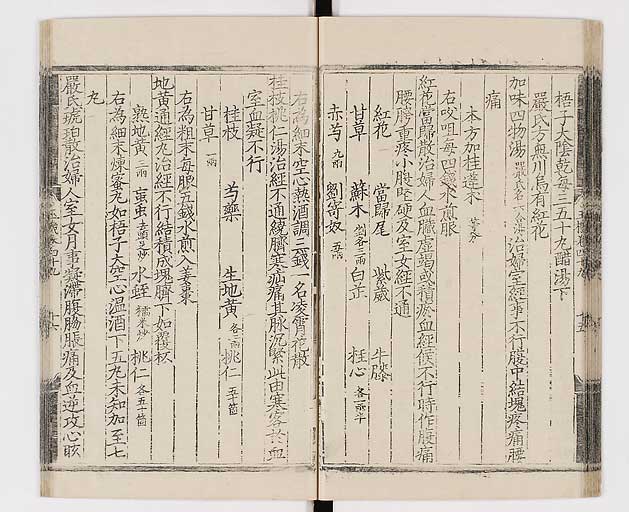 梧子大陰乾每三五十九醋湯下
嚴氏方無川烏有紅花
加味四物湯 治婦室經事不行腹中結塊疼痛腰
痛
本方加桂蓬朮 等分
右㕮咀每四錢水煎服
紅花當歸散治婦人血臟虛竭或積瘀血經候不行時作腹痛
腰胯重疼小腹堅硬及室女經不通
紅花 當歸尾 紫葳 牛膝
甘草 蘇木 各三兩 白芷 桂心 各一兩半
赤芍 九兩 劉寄奴 五兩
右為細末空心熱酒調三錢一名凌霄花散
桂枝桃仁湯治經不通繞臍寒疝痛其脉沉緊此由寒客於血
室血凝不行
桂枝 芍藥 生地黃 各二兩 桃仁 五十箇
甘草 一兩
右為粗末每服五錢水煎入姜棗
地黃通經丸治經不行結積成塊臍下如覆杯
熟地黃 三兩 蝱虫 去頭足炒 水蛭 糯米炒 桃仁 各五十箇
右為細末煉蜜丸如梧子大空心温酒下五丸未知加至七
丸
嚴氏琥珀散治婦人室女月事凝滯腹脇脹痛及血逆攻心眩